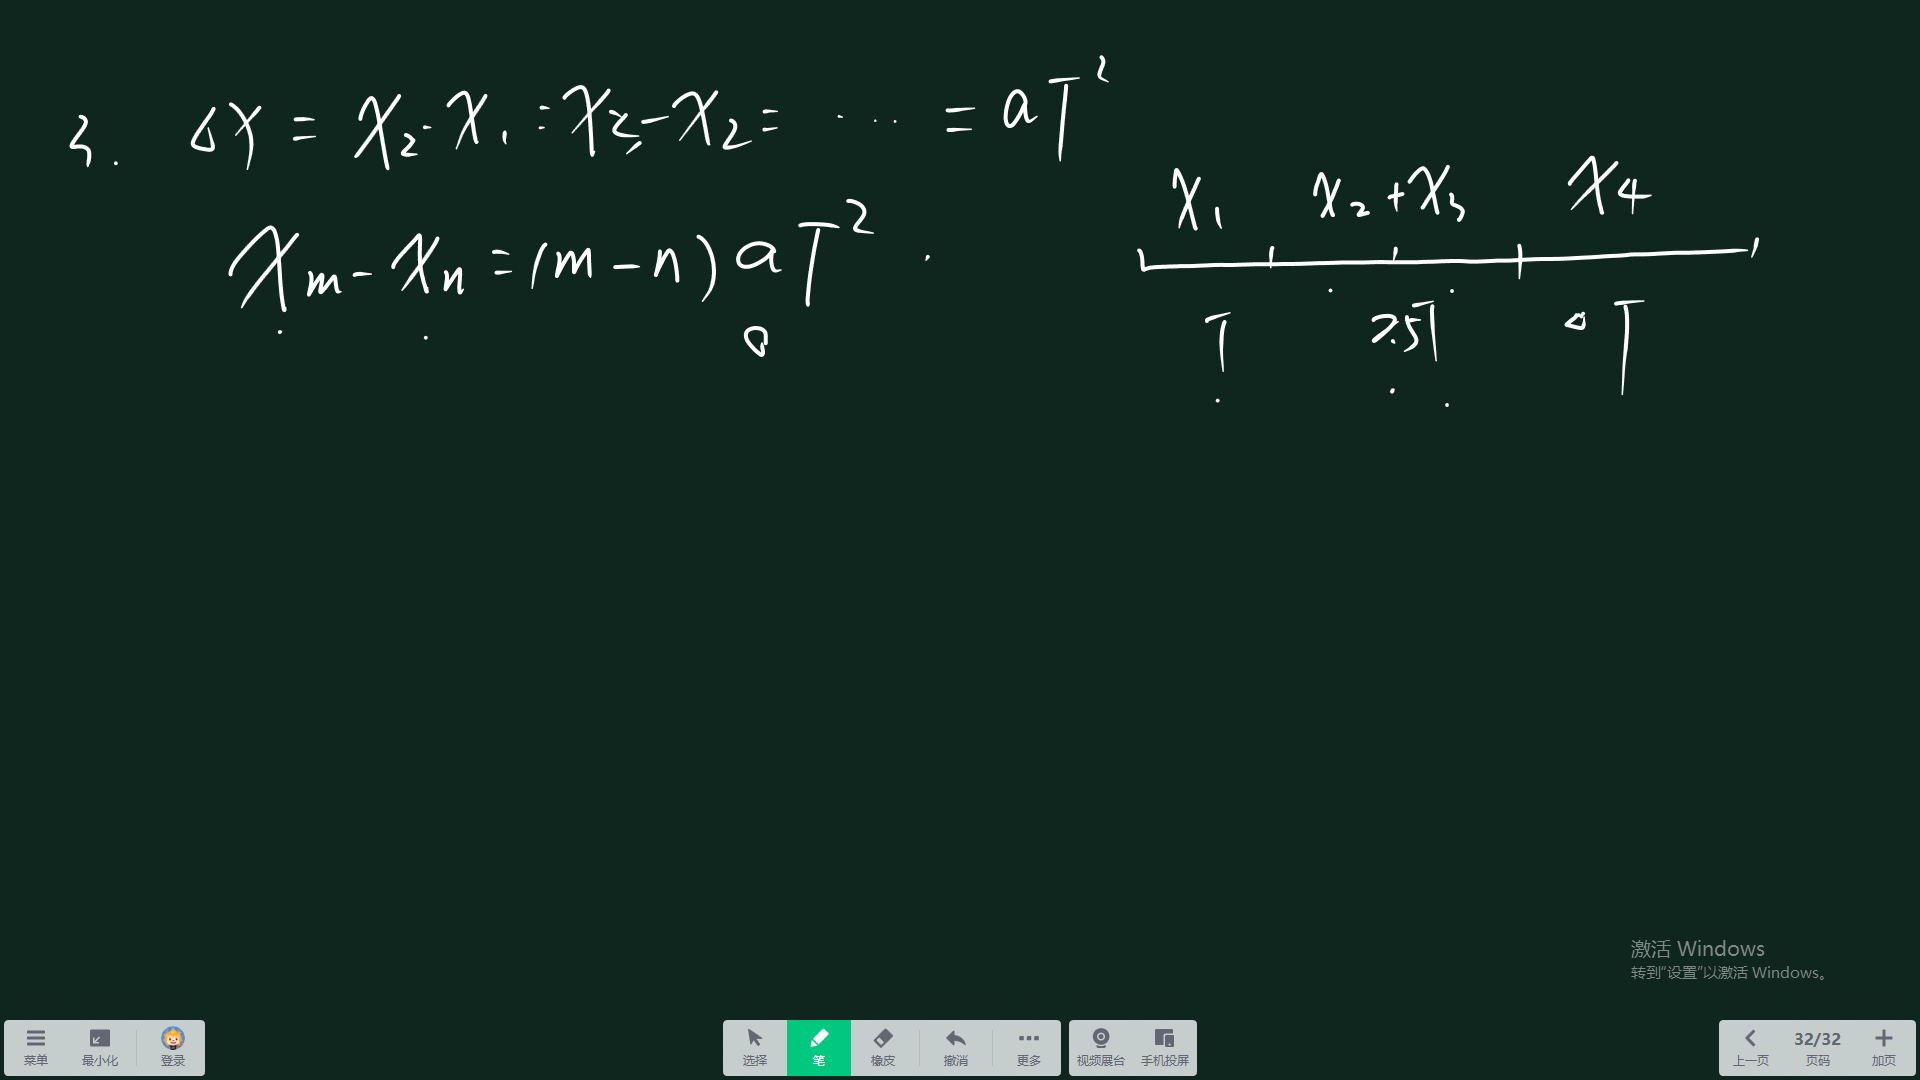 3. ΔX = X₂ - X₁ = X₃ - X₂ = ... = aT²
Xm - Xn = (m - n) aT²
X₁ X₂ + X₃ X₄
T T
激活 Windows
转到“设置”以激活 Windows。
菜单 最小化 登录
选择 笔 橡皮 撤消 更多
视频展台 手机投屏
32/32
上一页 页码 加页